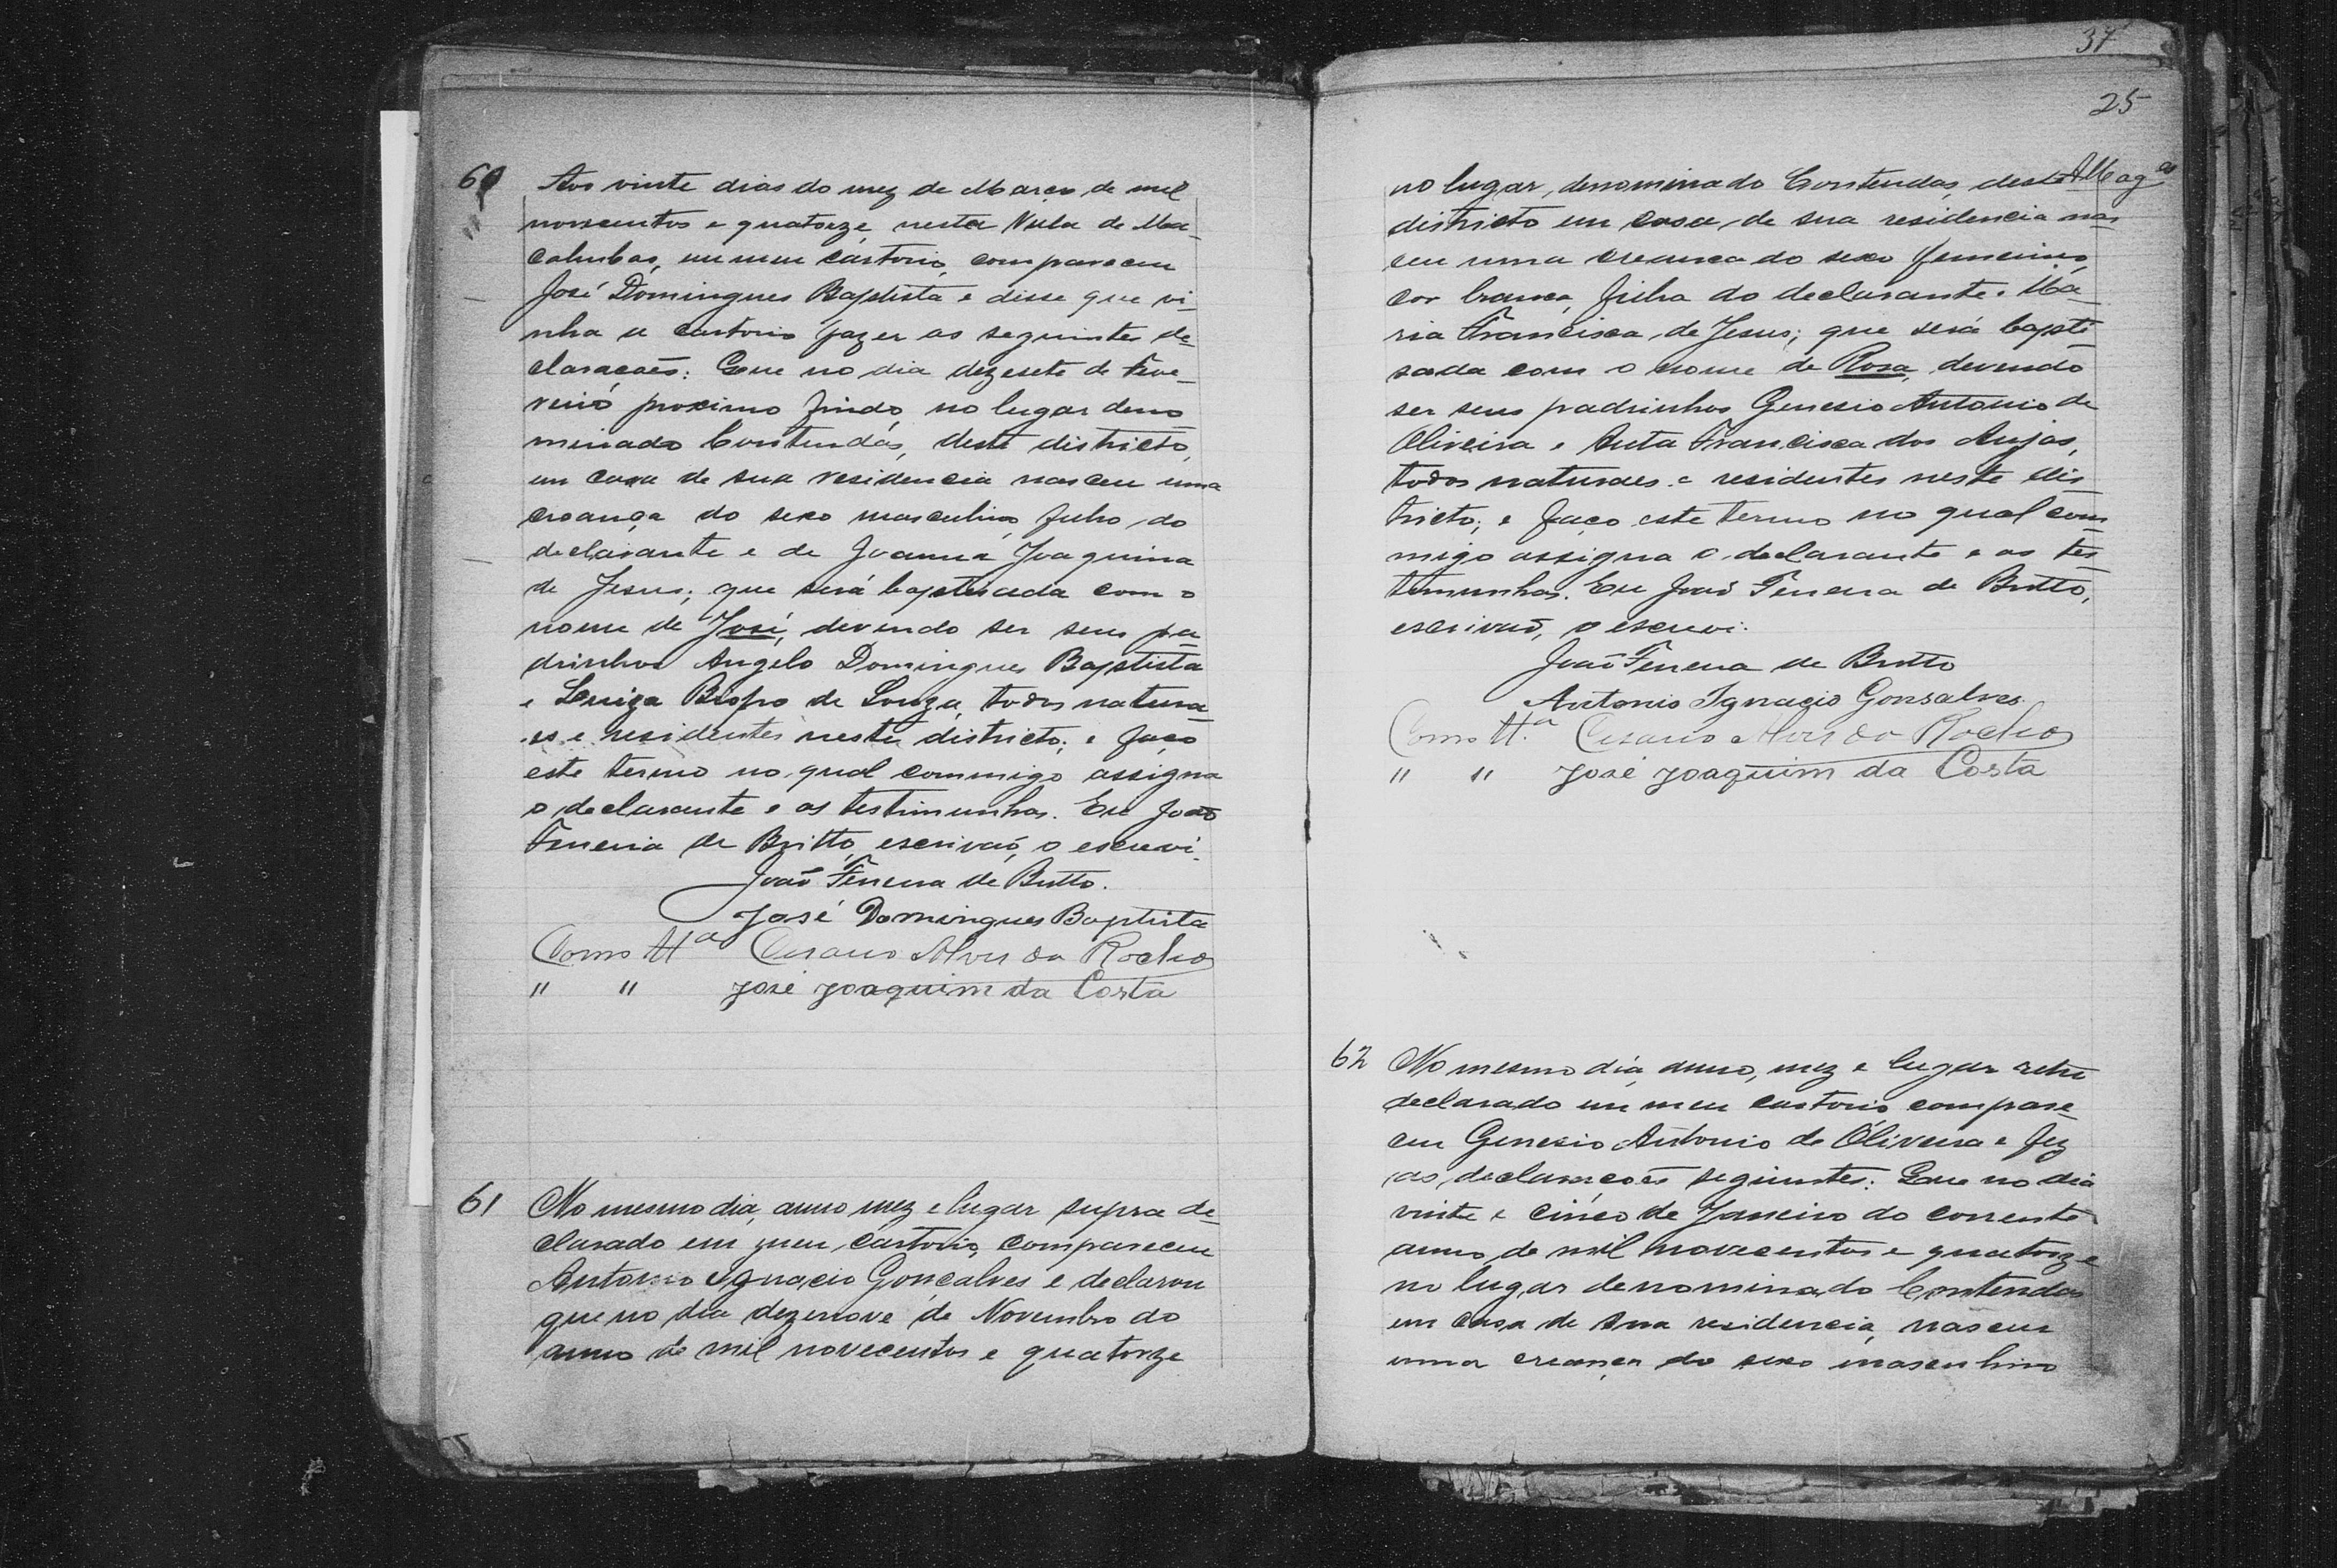 60 Aos vinte dias do mez de Março de mil
novecentos e quatorze, nesta Villa de Ma-
cahubas, em meu cartorio, compareceu
José Domingues Baptista e disse que vi-
nha a cartorio fazer as seguintes de-
claracoẽs: Que no dia dezesete de Feve-
reiro proximo findo, no lugar deno
minado Contendas, deste districto,
em casa de sua residencia nasceu uma
creança do sexo masculino, filho do
declarante e de Joanna Joaquina
de Jesus; que será baptisada com o
nome de José, devendo ser seus pa-
drinhos Angelo Domingues Baptista
e Luiza Bispo de Souza, todos natura-
es e residentes neste districto; e faço
este termo no qual commigo assigna
o declarante e as testimunhas. Eu João
Ferreira de Britto, escrivaõ, o escrevi.
João Ferreira de Britto.
José Domingues Baptista
Como tta Cesario Alves da Rocha
" " José Joaquim da Costa
61 No mesmo dia, anno mez e lugar supra de-
clarado em meu cartorio, compareceu
Antonio Ignacio Gonçalves e declarou
que no dia dezenove de Novembro do
anno de mil novecentos e quatorze
37
25
no lugar, denominado Contendas, deste
districto em casa de sua residencia nas-
ceu uma creanca do sexo femenino,
cor branca, filha do declarante e Ma-
ria Francisca de Jesus; que será bapti-
sada com o nome de Rosa, devendo
ser seus padrinhos Genesio Antonio de
Oliveira e Anta Francisca dos Anjos,
todos naturaes e residentes neste dis-
tricto; e faço este termo no qual com-
migo assigna o declarante e as tes-
timunhas. Eu João Ferreira de Britto,
escrivaõ, o escrevi.
João Ferreira de Britto
Antonio Ignacio Gonsalves.
Como tta Cesario Alves da Rocha
" " José Joaquim da Costa
62 No mesmo dia, anno, mez e lugar retro
declarado em meu cartorio compare-
ceu Genesio Antonio de Oliveira e fez
as declaracoẽs seguintes: Que no dia
vinte e cinco de Janeiro do corrente
anno de mil novecentos e quatorze
no lugar denominado Contendas
em casa de sua residencia, nasceu
uma creança do sexo masculino